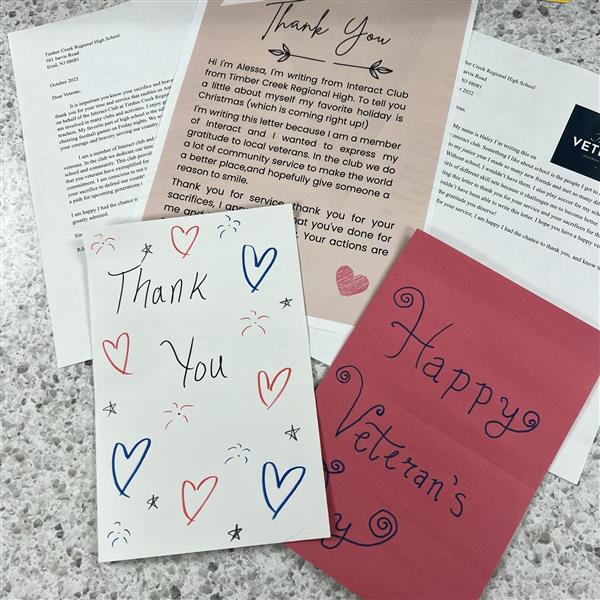 Timber Creek Regional High School
501 Jarvis Road
Erial, NJ 08081
October 2022
Dear Veteran,
It is important you know your sacrifice and bravery
thank you for your time and service that enables us
on behalf of the Interact Club at Timber Creek
are involved in many clubs and activities. I enjoy
teachers. My favorite part of high school is the
cheering football games on Friday nights. We
your courage and bravery serving our country
I am a member of Interact club and
veterans. In the club we dedicate our time
school and community. This club
that you veterans have exemplified for
commitment. I am conscious to not
your sacrifice to defend our
a path for upcoming generations
I am happy I had the chance to
greatly admired.
Thank You
Hi i'm Alessa, I'm writing from Interact Club
from Timber Creek Regional High. To tell you
a little about myself my favorite holiday is
Christmas (which is coming right up!)
I'm writing this letter because I am a member
of Interact and I wanted to express my
gratitude to local veterans. In the club we do
a lot of community service to make the world
a better place,and hopefully give someone a
reason to smile.
Thank you for service, thank you for your
sacrifices, I that you've done for
me and Your actions are
Creek Regional High School
Road
08081
2022
My name is Haley I'm writing this on
Interact club. Something I like about school is the people I get to
to my junior year I made so many new friends and met so many
Without school, I wouldn't have them. I also play soccer for my school
girls of different skill sets because it challenges me to become better
this letter to thank you for your service and your sacrifices for the
wouldn't have been able to write this letter. I hope you have a happy
the gratitude you deserve!
for your service, I am happy I had the chance to thank you, and know
VETE
Thank
You
Happy
Veteran's